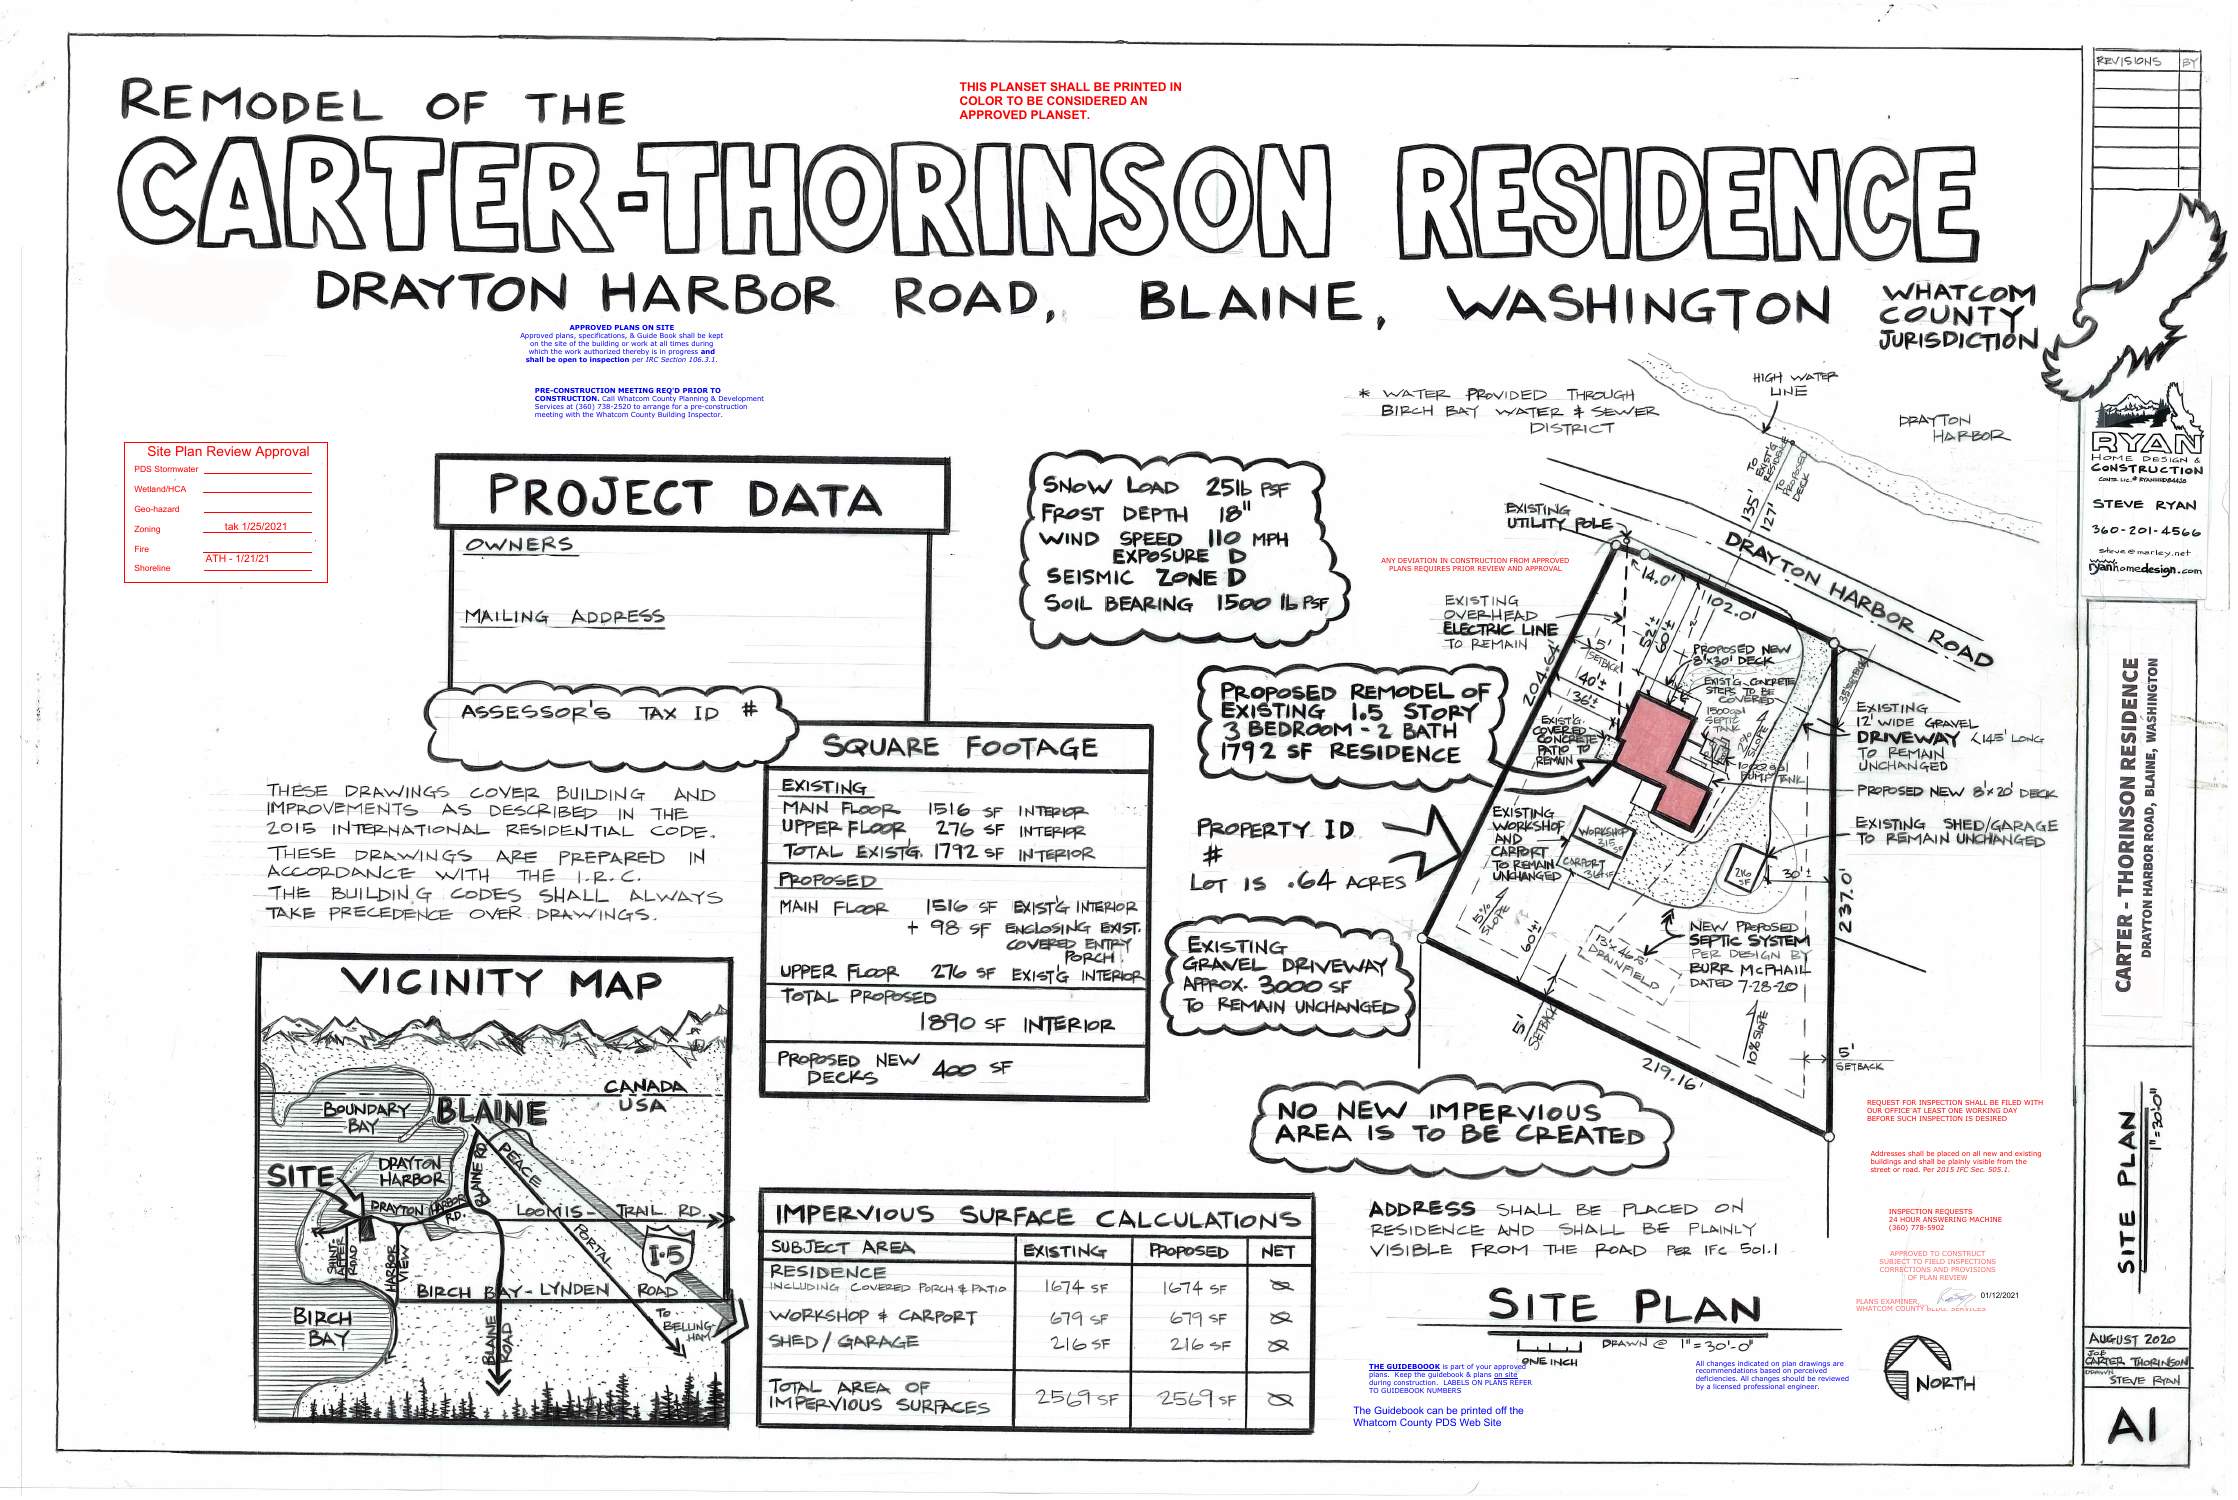 REMODEL OF THE
CARTER-THORINSON RESIDENCE
DRAYTON HARBOR ROAD, BLAINE, WASHINGTON
WHATCOM
COUNTY
JURISDICTION
THIS PLANSET SHALL BE PRINTED IN
COLOR TO BE CONSIDERED AN
APPROVED PLANSET.
APPROVED PLANS ON SITE
Approved plans, specifications, & Guide Book shall be kept
on the site of the building or work at all times during
which the work authorized thereby is in progress and
shall be open to inspection per IRC Section 106.3.1.
PRE-CONSTRUCTION MEETING REQ'D PRIOR TO
CONSTRUCTION. Call Whatcom County Planning & Development
Services at (360) 738-2520 to arrange for a pre-construction
meeting with the Whatcom County Building Inspector.
Site Plan Review Approval
PDS Stormwater
Wetland/HCA
Geo-hazard
Zoning tak 1/25/2021
Fire
Shoreline ATH - 1/21/21
PROJECT DATA
OWNERS
MAILING ADDRESS
ASSESSOR'S TAX ID #
SNOW LOAD 25lb PSF
FROST DEPTH 18"
WIND SPEED 110 MPH
EXPOSURE D
SEISMIC ZONE D
SOIL BEARING 1500 lb PSF
THESE DRAWINGS COVER BUILDING AND
IMPROVEMENTS AS DESCRIBED IN THE
2015 INTERNATIONAL RESIDENTIAL CODE.
THESE DRAWINGS ARE PREPARED IN
ACCORDANCE WITH THE I.R.C.
THE BUILDING CODES SHALL ALWAYS
TAKE PRECEDENCE OVER DRAWINGS.
SQUARE FOOTAGE
EXISTING
MAIN FLOOR 1516 SF INTERIOR
UPPER FLOOR 276 SF INTERIOR
TOTAL EXIST'G. 1792 SF INTERIOR
PROPOSED
MAIN FLOOR 1516 SF EXIST'G INTERIOR
+ 98 SF ENCLOSING EXIST.
COVERED ENTRY
PORCH
UPPER FLOOR 276 SF EXIST'G INTERIOR
TOTAL PROPOSED
1890 SF INTERIOR
PROPOSED NEW
DECKS 400 SF
VICINITY MAP
CANADA
USA
BOUNDARY
BAY
BLAINE
SITE
DRAYTON
HARBOR
DRAYTON HARBOR
RD.
BLAINE RD
PEACE
PORTAL
LOOMIS - TRAIL RD.
I-5
HARBOR
VIEW
BIRCH BAY - LYNDEN ROAD
BIRCH
BAY
BLAINE
ROAD
TO
BELLING-
HAM
IMPERVIOUS SURFACE CALCULATIONS
SUBJECT AREA EXISTING PROPOSED NET
RESIDENCE
INCLUDING COVERED PORCH & PATIO 1674 SF 1674 SF Ø
WORKSHOP & CARPORT 679 SF 679 SF Ø
SHED / GARAGE 216 SF 216 SF Ø
TOTAL AREA OF
IMPERVIOUS SURFACES 2569 SF 2569 SF Ø
* WATER PROVIDED THROUGH
BIRCH BAY WATER & SEWER
DISTRICT
HIGH WATER
LINE
DRAYTON
HARBOR
135' TO EXIST'G RESIDENCE
127' TO PROPOSED DECK
EXISTING
UTILITY POLE
DRAYTON HARBOR ROAD
ANY DEVIATION IN CONSTRUCTION FROM APPROVED
PLANS REQUIRES PRIOR REVIEW AND APPROVAL
EXISTING
OVERHEAD
ELECTRIC LINE
TO REMAIN
14.0'
102.0'
204.64'
52'±
60'±
5'
SETBACK
40'±
36'±
35' SETBACK
PROPOSED NEW
8'x30' DECK
EXIST'G CONCRETE
STEPS TO BE
COVERED
1500gal
SEPTIC
TANK
2%
SLOPE
1000gal
PUMP TANK
EXIST'G.
COVERED
CONCRETE
PATIO TO
REMAIN
PROPOSED REMODEL OF
EXISTING 1.5 STORY
3 BEDROOM - 2 BATH
1792 SF RESIDENCE
EXISTING
12' WIDE GRAVEL
DRIVEWAY <145' LONG
TO REMAIN
UNCHANGED
PROPOSED NEW 8'x20' DECK
EXISTING SHED/GARAGE
TO REMAIN UNCHANGED
PROPERTY ID
#
LOT IS .64 ACRES
EXISTING
WORKSHOP
AND
CARPORT
TO REMAIN
UNCHANGED
WORKSHOP
315 SF
CARPORT
364 SF
216
SF
30'±
237.0'
15%
SLOPE
60'±
13'x46.5'
DRAINFIELD
NEW PROPOSED
SEPTIC SYSTEM
PER DESIGN BY
BURR McPHAIL
DATED 7-28-20
EXISTING
GRAVEL DRIVEWAY
APPROX. 3000 SF
TO REMAIN UNCHANGED
5'
SETBACK
10% SLOPE
219.16'
5'
SETBACK
NO NEW IMPERVIOUS
AREA IS TO BE CREATED
ADDRESS SHALL BE PLACED ON
RESIDENCE AND SHALL BE PLAINLY
VISIBLE FROM THE ROAD PER IFC 501.1
SITE PLAN
ONE INCH
DRAWN @ 1"=30'-0"
THE GUIDEBOOOK is part of your approved
plans. Keep the guidebook & plans on site
during construction. LABELS ON PLANS REFER
TO GUIDEBOOK NUMBERS
The Guidebook can be printed off the
Whatcom County PDS Web Site
All changes indicated on plan drawings are
recommendations based on perceived
deficiencies. All changes should be reviewed
by a licensed professional engineer.
REQUEST FOR INSPECTION SHALL BE FILED WITH
OUR OFFICE AT LEAST ONE WORKING DAY
BEFORE SUCH INSPECTION IS DESIRED
Addresses shall be placed on all new and existing
buildings and shall be plainly visible from the
street or road. Per 2015 IFC Sec. 505.1.
INSPECTION REQUESTS
24 HOUR ANSWERING MACHINE
(360) 778-5902
APPROVED TO CONSTRUCT
SUBJECT TO FIELD INSPECTIONS
CORRECTIONS AND PROVISIONS
OF PLAN REVIEW
PLANS EXAMINER, 01/12/2021
WHATCOM COUNTY BLDG. SERVICES
NORTH
REVISIONS BY
RYAN
HOME DESIGN &
CONSTRUCTION
STEVE RYAN
360-201-4566
steve@marley.net
ryanhomedesign.com
CARTER - THORINSON RESIDENCE
DRAYTON HARBOR ROAD, BLAINE, WASHINGTON
SITE PLAN
1"=30'-0"
AUGUST 2020
JOB
CARTER THORINSON
DRAWN
STEVE RYAN
A1